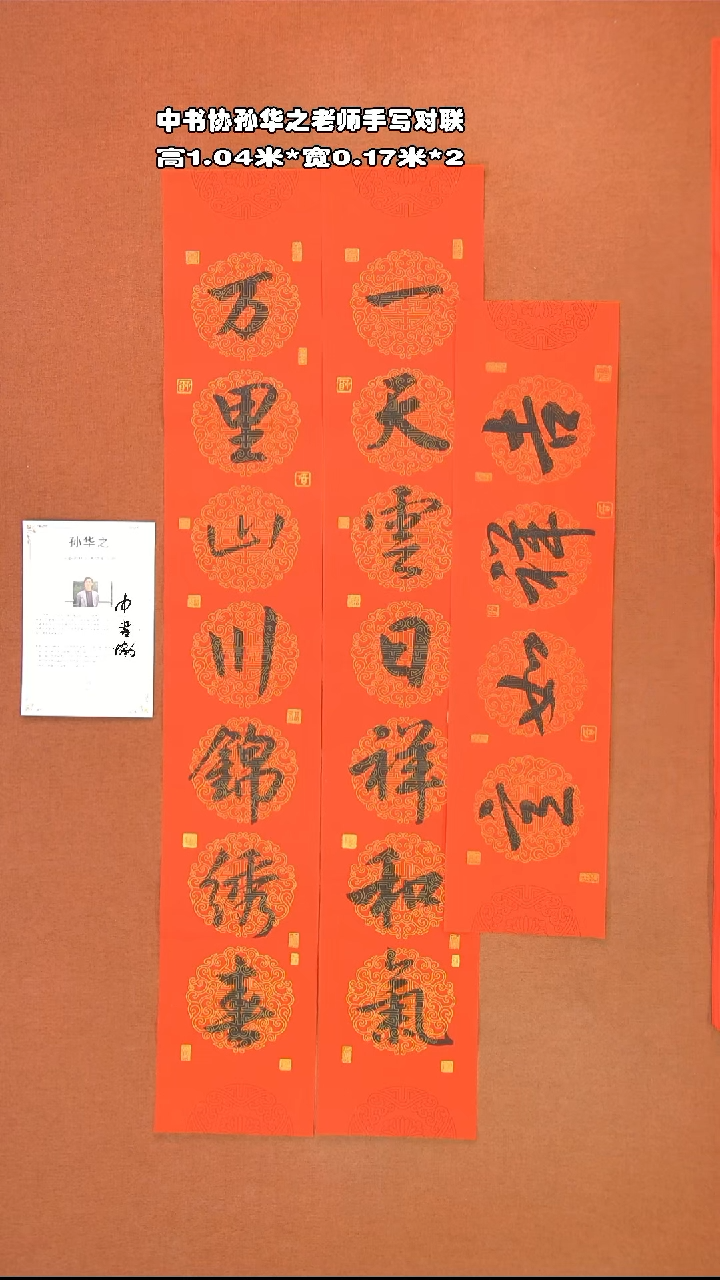 中书协孙华之老师手写对联
高1.04米*宽0.17米*2
一天雲日祥和氣
万里山川錦绣春
吉祥如意
孙华之
中书协